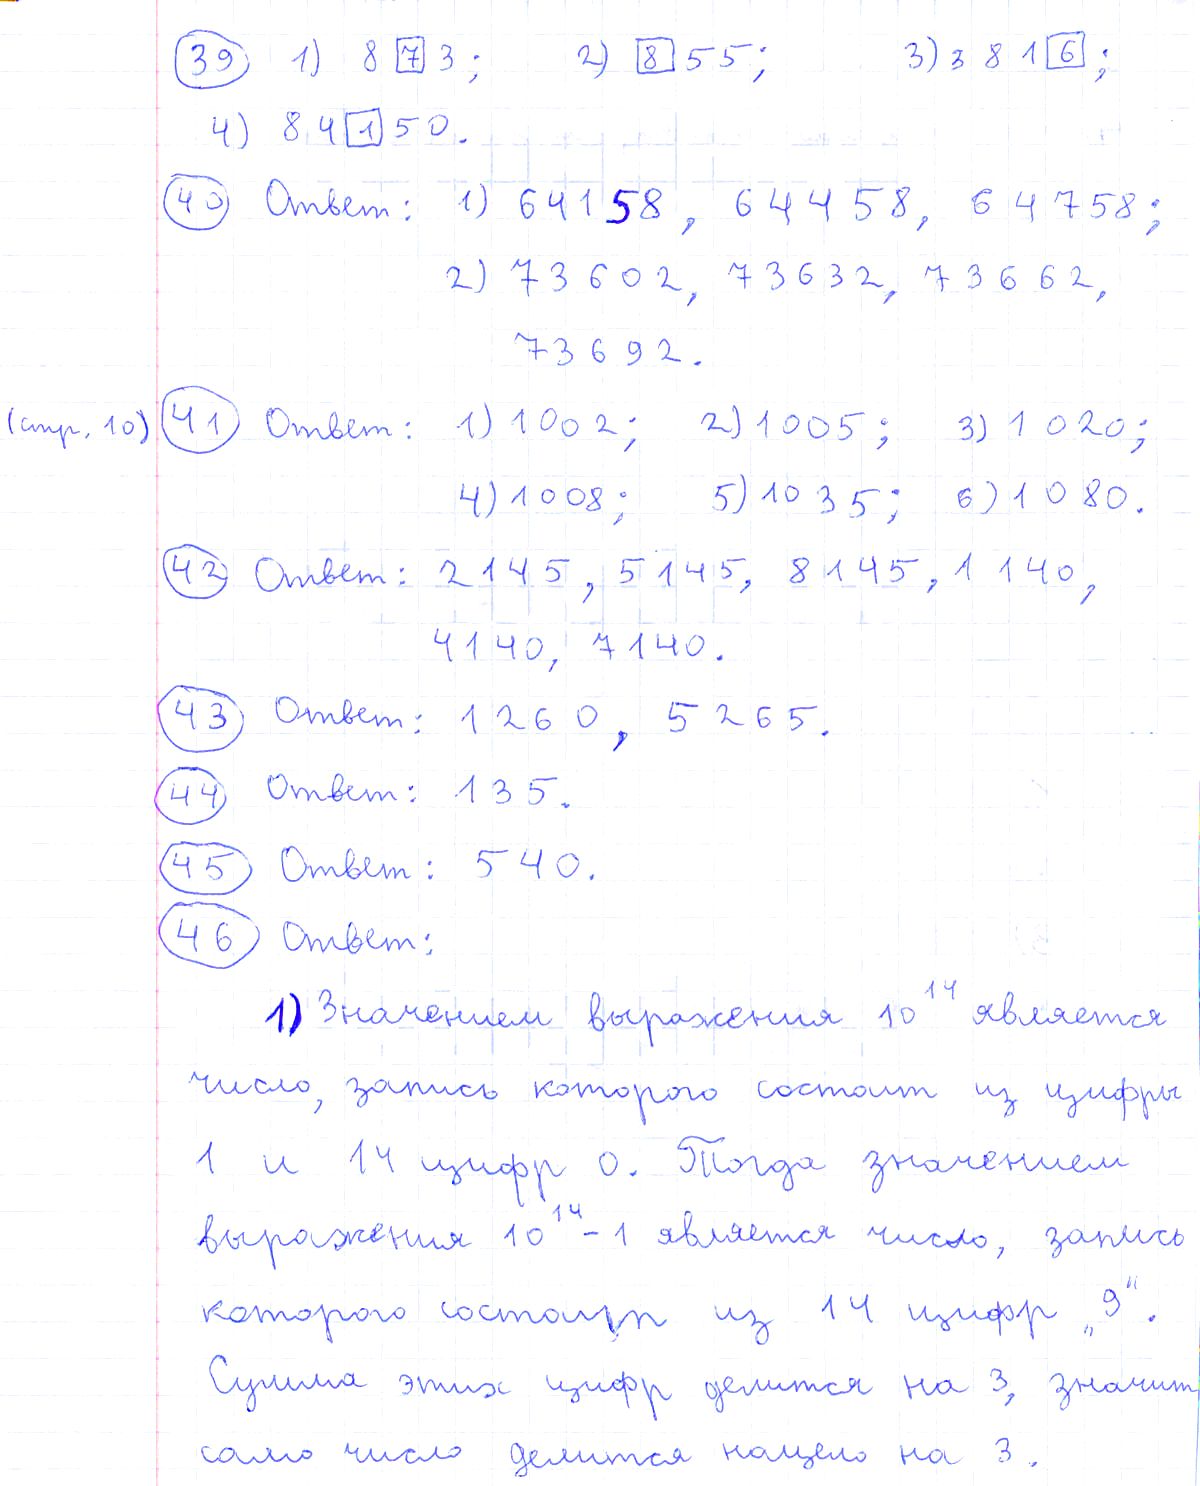 39 1) 8 7 3; 2) 8 55; 3) 381 6;
4) 84 1 50.
40 Ответ: 1) 64158, 64458, 64758;
2) 73602, 73632, 73662,
73692.
(стр. 10) 41 Ответ: 1) 1002; 2) 1005; 3) 1020;
4) 1008; 5) 1035; 6) 1080.
42 Ответ: 2145, 5145, 8145, 1140,
4140, 7140.
43 Ответ: 1260, 5265.
44 Ответ: 135.
45 Ответ: 540.
46 Ответ:
1) Значением выражения 10¹⁴ является
число, запись которого состоит из цифры
1 и 14 цифр 0. Тогда значением
выражения 10¹⁴ - 1 является число, запись
которого состоит из 14 цифр „9“.
Сумма этих цифр делится на 3, значит
само число делится нацело на 3.